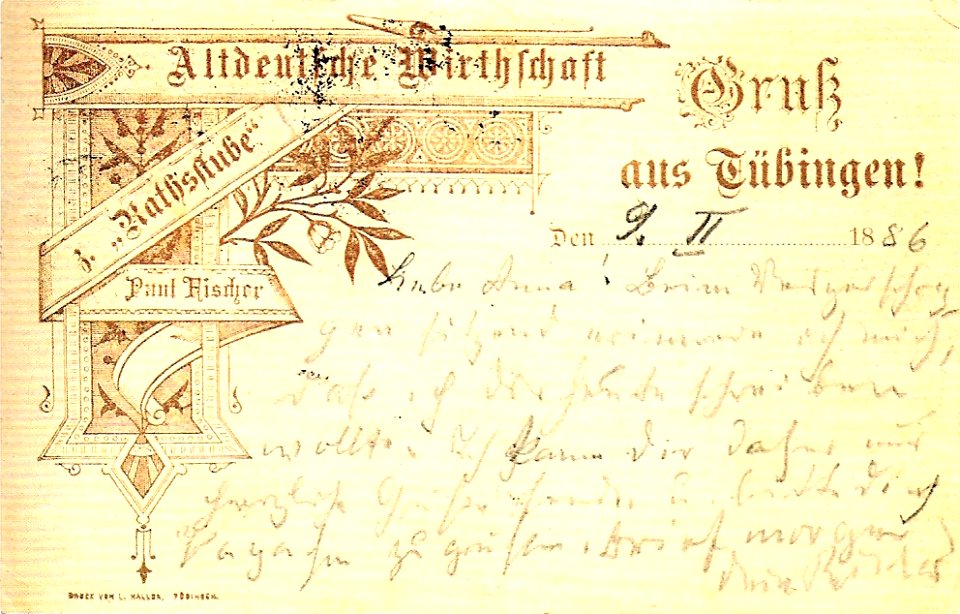 Altdeutsche Wirthschaft
z. „Rathsstube“
Paul Fischer
Gruß
aus Tübingen!
Den 9. II 1886
Liebe Anna! Beim
sitzend erinnere ich mich,
daß ich Dir heute schreiben
wollte. Ich kann Dir daher nur
herzliche Grüße senden u. bitte Dich
zu grüßen. Brief morgen
Dein
DRUCK VON L. MALLOR, TÜBINGEN.